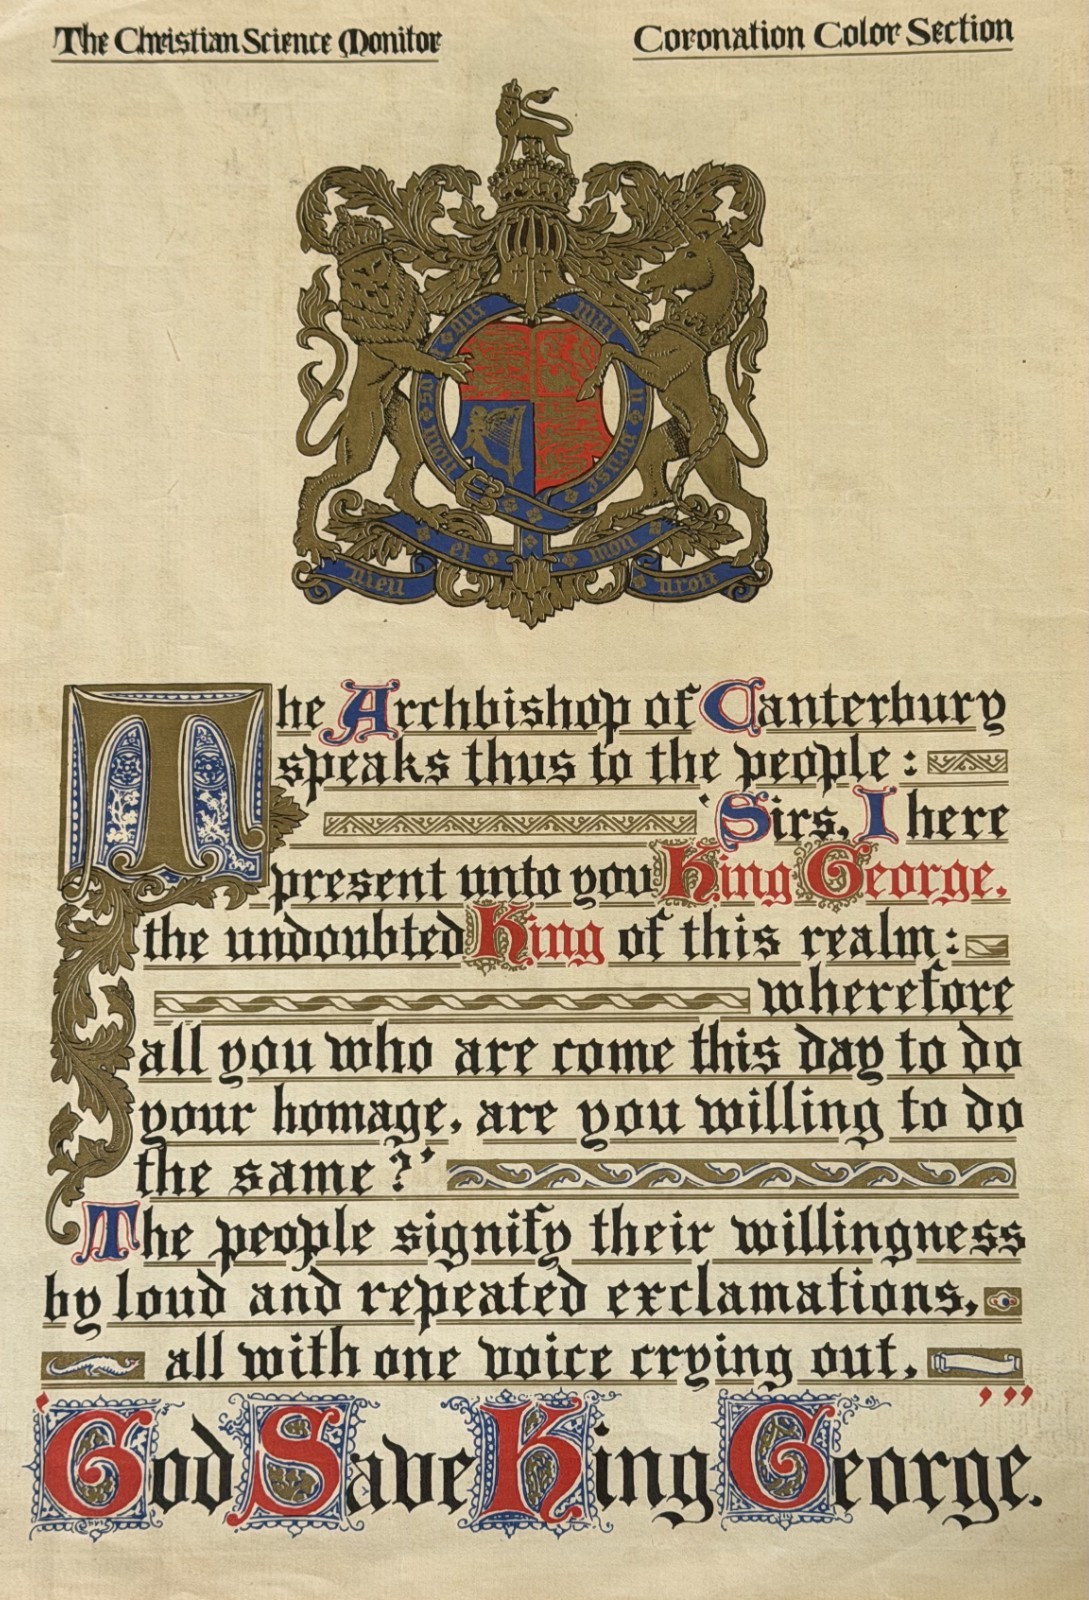 The Christian Science Monitor
Coronation Color Section
honi soit qui mal y pense
Dieu et mon droit
The Archbishop of Canterbury
speaks thus to the people:
‘Sirs, I here
present unto you King George,
the undoubted King of this realm:
wherefore
all you who are come this day to do
your homage, are you willing to do
the same?’
The people signify their willingness
by loud and repeated exclamations,
all with one voice crying out,
‘God Save King George.’’’